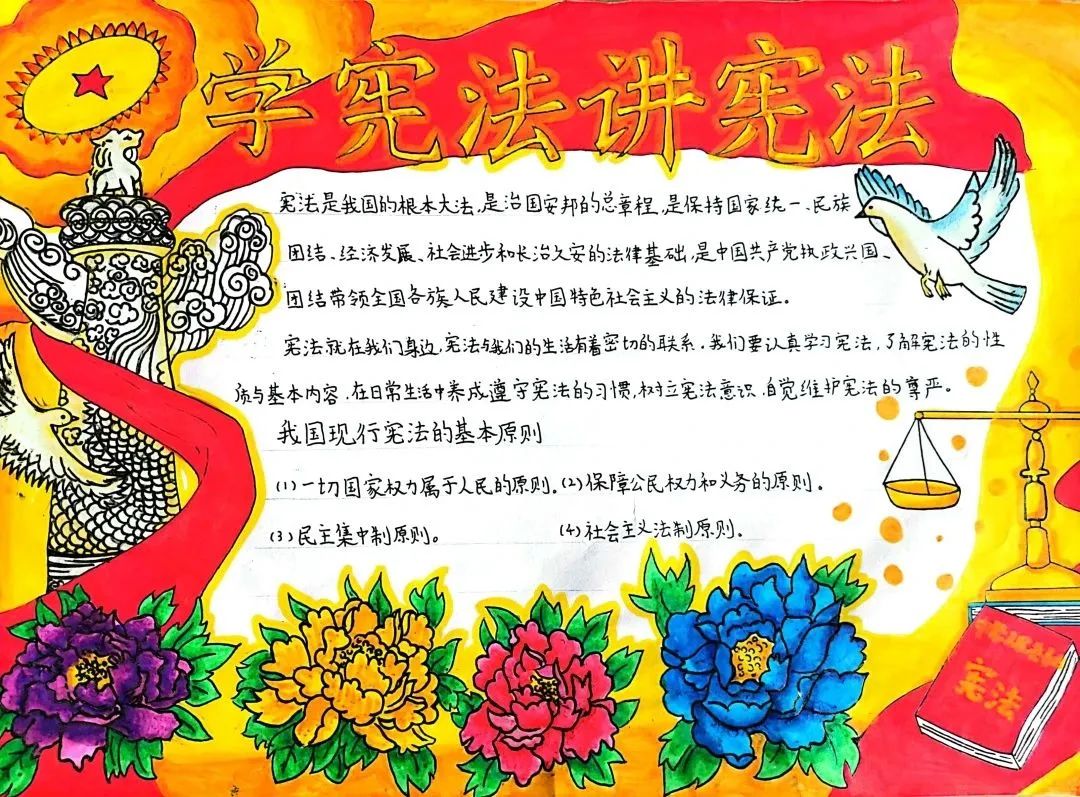 学宪法讲宪法
宪法是我国的根本大法,是治国安邦的总章程,是保持国家统一、民族
团结、经济发展、社会进步和长治久安的法律基础,是中国共产党执政兴国、
团结带领全国各族人民建设中国特色社会主义的法律保证。
宪法就在我们身边,宪法与我们的生活有着密切的联系。我们要认真学习宪法,了解宪法的性
质与基本内容,在日常生活中养成遵守宪法的习惯,树立宪法意识,自觉维护宪法的尊严。
我国现行宪法的基本原则
(1)一切国家权力属于人民的原则。(2)保障公民权力和义务的原则。
(3)民主集中制原则。 (4)社会主义法制原则。
宪法